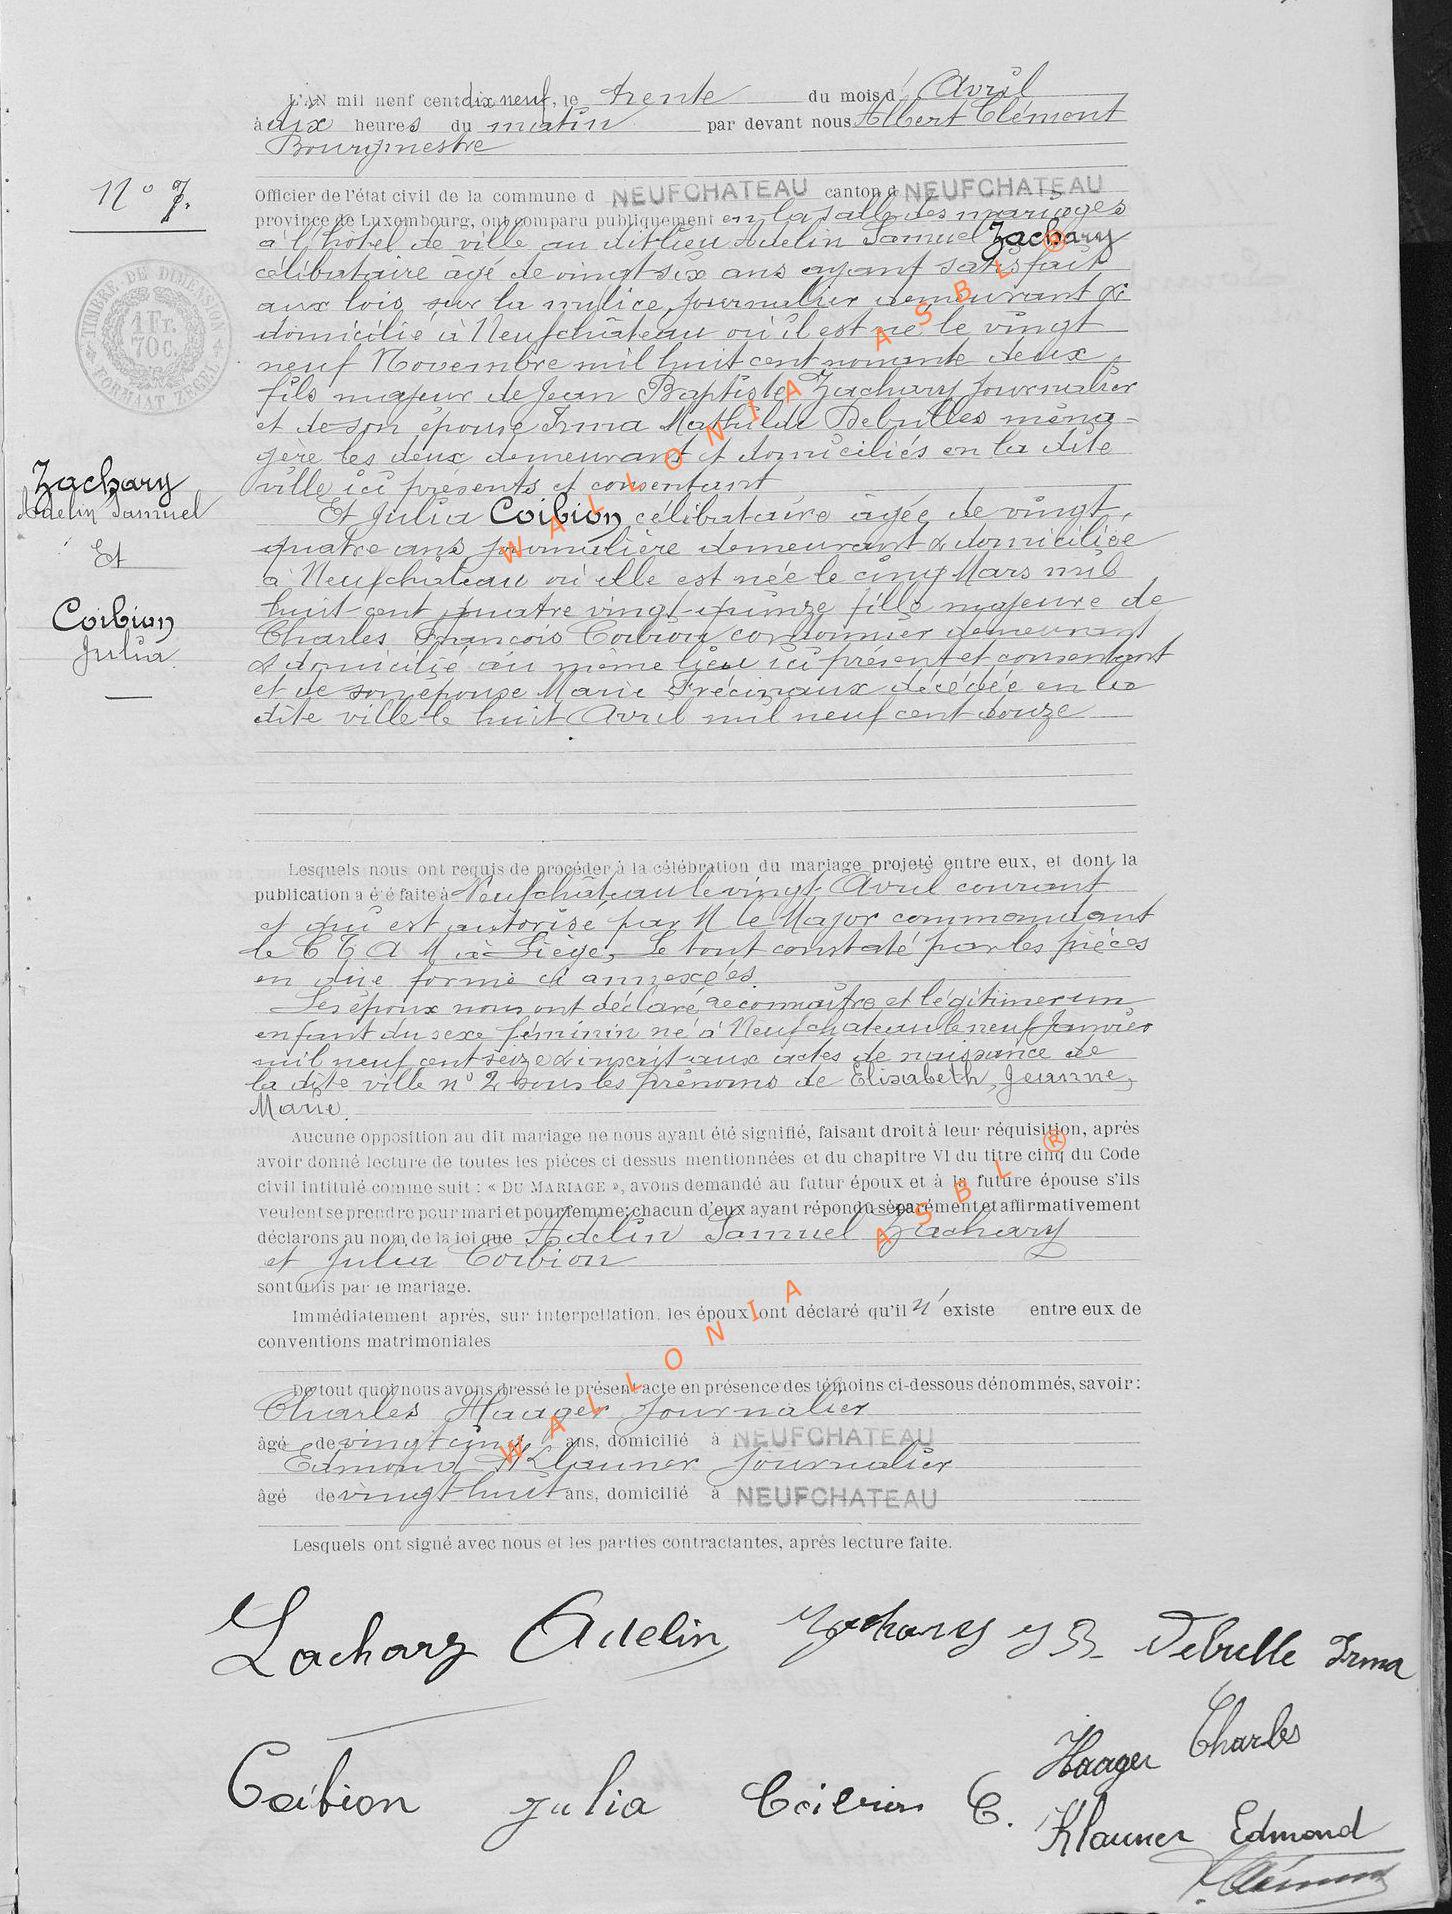 L'AN mil neuf cent dix neuf, le trente du mois d'Avril
à dix heures du matin par devant nous Albert Clément
Bourgmestre
N° 7.
Officier de l'état civil de la commune d NEUFCHATEAU canton d NEUFCHATEAU
province de Luxembourg, ont comparu publiquement en la salle des mariages
à l'hôtel de ville au dit lieu Adelin Samuel Zachary
célibataire âgé de vingt six ans ayant satisfait
aux lois sur la milice, journalier demeurant &
domicilié à Neufchâteau où il est né le vingt
neuf Novembre mil huit cent nonante deux,
fils majeur de Jean Baptiste Zachary journalier
et de son épouse Irma Mathilde Debulles ména-
gère les deux demeurant et domiciliés en la dite
ville ici présents et consentant
Et Julia Coibion, célibataire âgée de vingt
quatre ans journalière demeurant & domiciliée
à Neufchâteau où elle est née le cinq Mars mil
huit cent quatre vingt-quinze fille majeure de
Charles François Coibion cordonnier demeurant
& domicilié au même lieu ici présent et consentant
et de son épouse Marie Frécinaux décédée en la
dite ville le huit Avril mil neuf cent douze
Zachary
Adelin Samuel
Et
Coibion
Julia
TIMBRE DE DIMENSION
1 Fr.
70c
FORMAAT ZEGEL
Lesquels nous ont requis de procéder à la célébration du mariage projeté entre eux, et dont la
publication a été faite à Neufchâteau le vingt Avril courant
et qui est autorisé par M le Major commandant
le C T A M à Liège, Le tout constaté par les pièces
en due forme ci annexées.
Les époux nous ont déclaré reconnaître et légitimer un
enfant du sexe féminin né à Neufchateau le neuf Janvier
mil neuf cent seize & inscrit aux actes de naissance de
la dite ville n° 2 sous les prénoms de Elisabeth, Jeanne,
Marie.
Aucune opposition au dit mariage ne nous ayant été signifié, faisant droit à leur réquisition, après
avoir donné lecture de toutes les pièces ci dessus mentionnées et du chapitre VI du titre cinq du Code
civil intitulé comme suit : « DU MARIAGE », avons demandé au futur époux et à la future épouse s'ils
veulent se prendre pour mari et pour femme; chacun d'eux ayant répondu séparément et affirmativement
déclarons au nom de la loi que Adelin Samuel Zachary
et Julia Coibion
sont unis par le mariage.
Immédiatement après, sur interpellation, les époux ont déclaré qu'il n'existe entre eux de
conventions matrimoniales
De tout quoi nous avons dressé le présent acte en présence des témoins ci-dessous dénommés, savoir :
Charles Haager journalier
âgé de vingt cinq ans, domicilié à NEUFCHATEAU
Edmond Klauner journalier
âgé de vingt huit ans, domicilié à NEUFCHATEAU
Lesquels ont signé avec nous et les parties contractantes, après lecture faite.
Zachary Adelin Zachary J B Debulle Irma
Haager Charles
Coibion Julia Coibion C.
Klauner Edmond
Clément
WALLONIA ASBL ®
WALLONIA ASBL ®